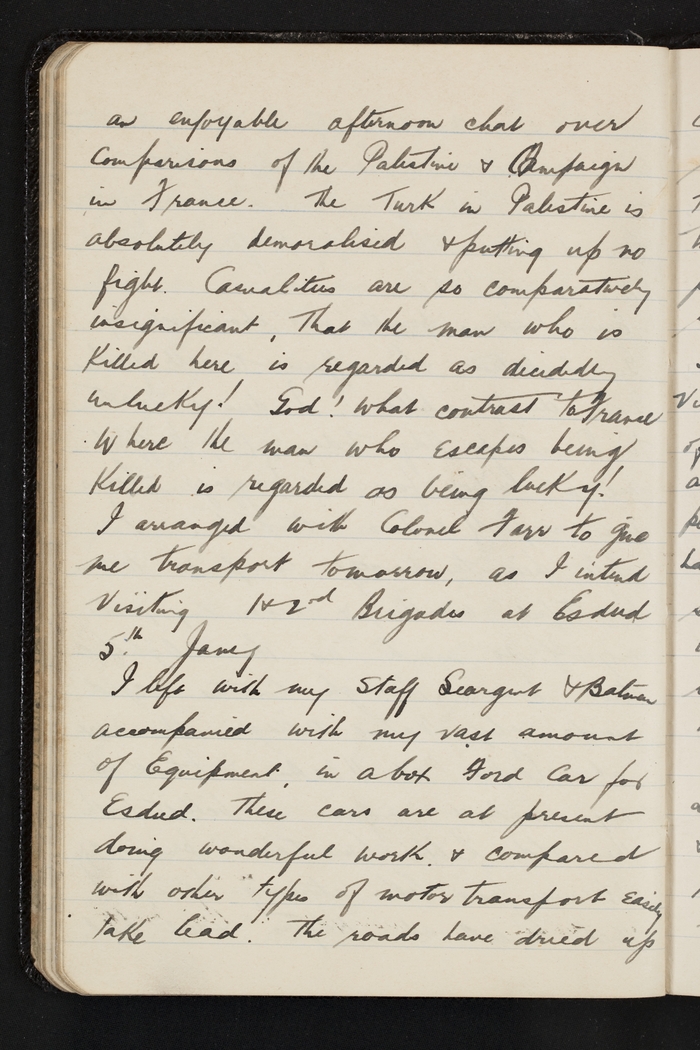 an enjoyable afternoon chat over
Comparisons of the Palestine & Campaign
in France. The Turk in Palestine is
absolutely demoralised & putting up no
fight. Casualities are so comparatively
insignificant, that the man who is
Killed here is regarded as decidedly
unlucky! God! what contrast to France
Where the man who escapes being
Killed is regarded as being lucky!
I arranged with Colonel Farr to give
me transport tomorrow, as I intend
Visiting 1 & 2nd Brigades at Esdud
5th Jany
I left with my Staff Seargent & Batman
accompanied with my vast amount
of Equipment, in a box Ford Car for
Esdud. These cars are at present
doing wonderful work. & compared
with other types of motor transport easily
take lead. The roads have dried up